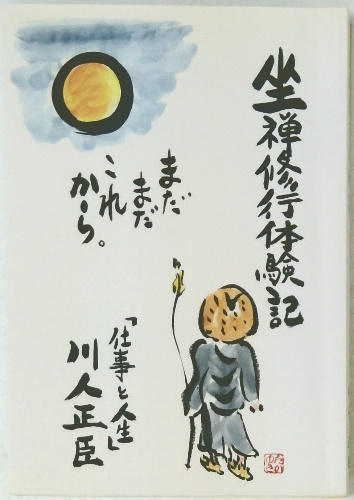 坐禅修行体験記
まだ
まだ
これ
から。
「仕事と人生」
川人正臣